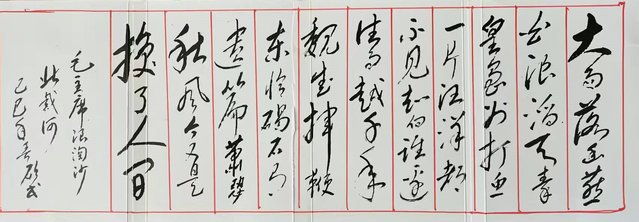 大雨落幽燕
白浪滔天秦
皇岛外打鱼
一片汪洋都
不见知向谁边
往事越千年
魏武挥鞭
东临碣石有
遗篇萧瑟
秋风今又是
换了人间
毛主席浪淘沙
北戴河
乙巳年春